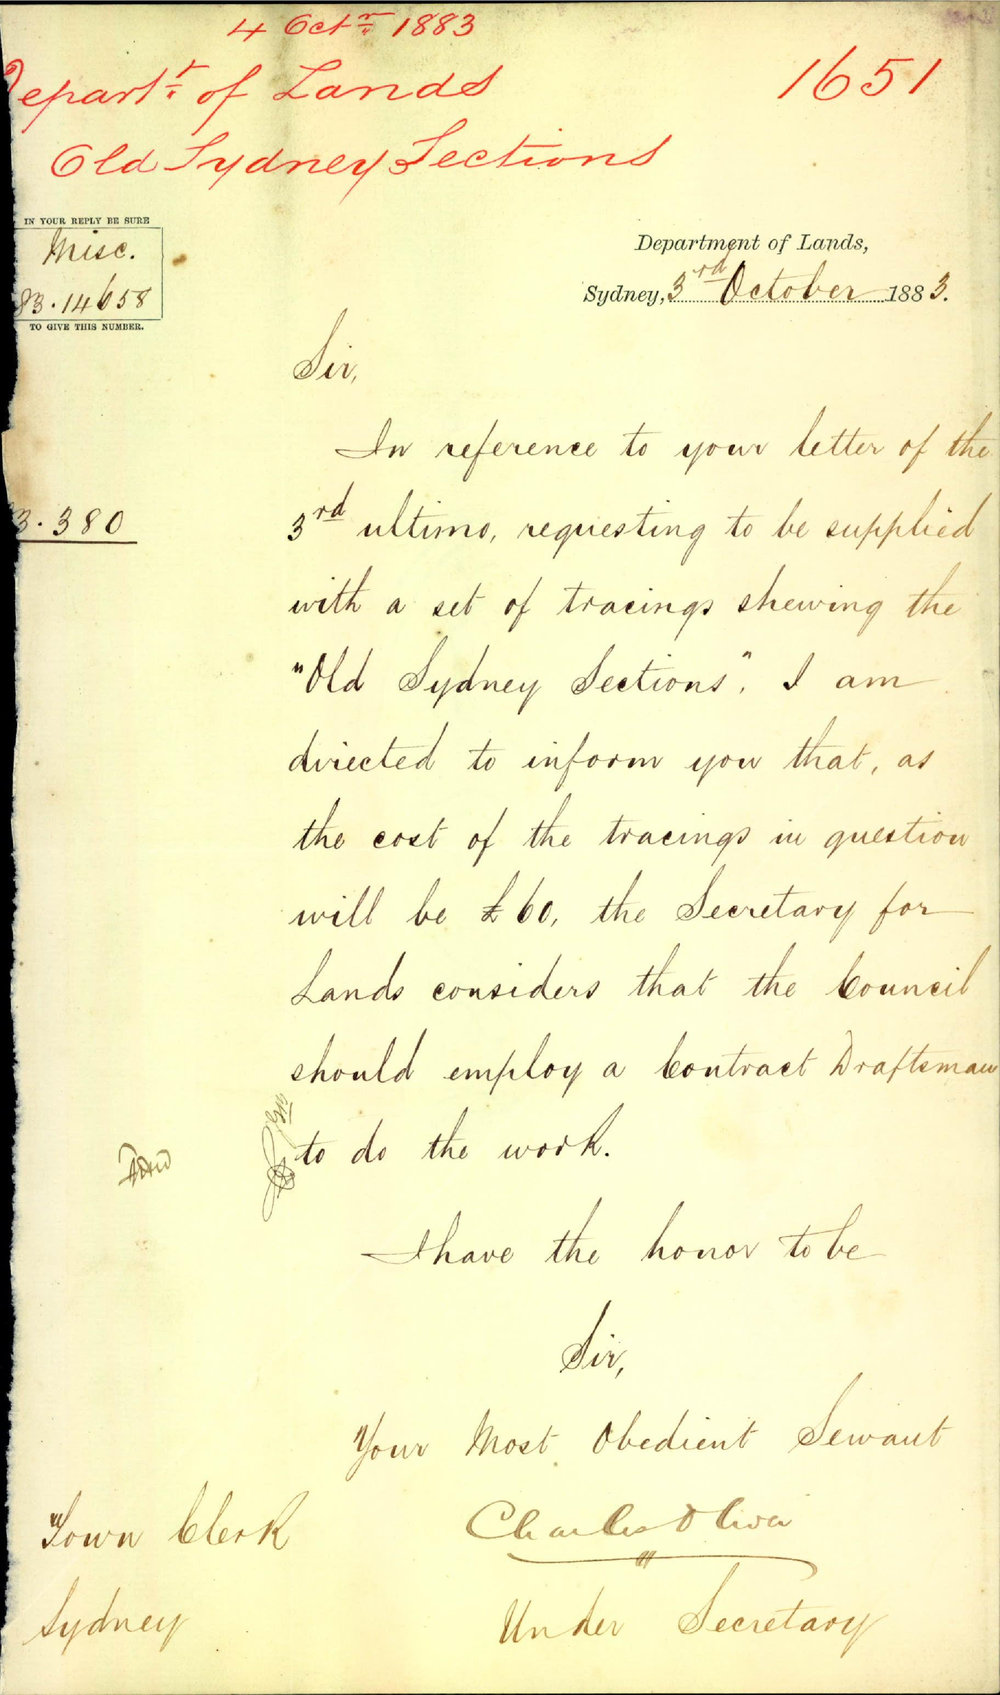 4 Octr 1883
Depart.t of Lands
1651
Old Sydney Sections
IN YOUR REPLY BE SURE
Misc.
83.14658
TO GIVE THIS NUMBER.
Department of Lands,
Sydney, 3rd October 1883.
Sir,
In reference to your letter of the
3.380
3rd ultimo, requesting to be supplied
with a set of tracings shewing the
"Old Sydney Sections", I am
directed to inform you that, as
the cost of the tracings in question
will be £60, the Secretary for
Lands considers that the Council
should employ a Contract Draftsman
to do the work.
I have the honor to be
Sir,
Your Most Obedient Servant
Charles Oliver
Under Secretary
Town Clerk
Sydney